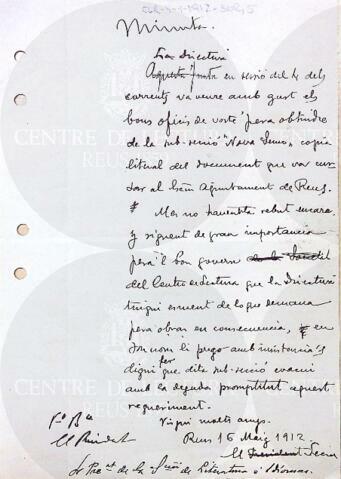 CLR-3-1-1912-
Minuta.
Directiva
Aquesta Junta en sessió del 4 dels
corrents va veure amb gust els
bons oficis de vosté pera obtindre
de la sub-secció "Nova Lemo" copia
literal del document que va cur-
sar al Exm Ajuntament de Reus.
Mes no haventla rebut encara
y siguent de gran importancia
pera'l bon govern
del Centre de Lectura que la Directiva
tingui esment de lo que demana
pera obrar en consecuencia, en
son nom li prego amb insistencia's
digni fer que dita sub-secció evacui
amb la deguda promptitut aquest
requeriment.
Visqui molts anys.
Reus 16 Maig 1912.
Vº Bº
El President
El Secre
Sr Pret de la Secció de Literatura i Idiomas.
CENTRE DE LECTURA
REUS
CENTRE DE LECTURA
REUS